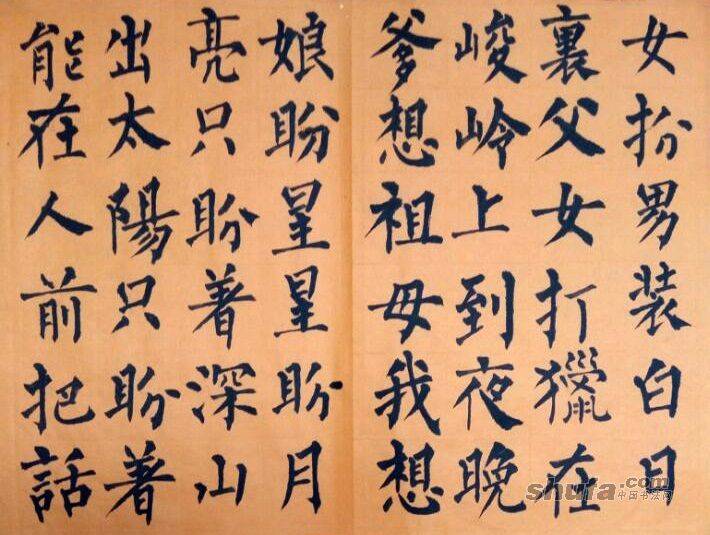 女扮男装白日
裏父女打獵在
峻岭上到夜晚
爹想祖母我想
娘盼星星盼月
亮只盼着深山
出太陽只盼着
能在人前把話
shufa.com
中国书法网